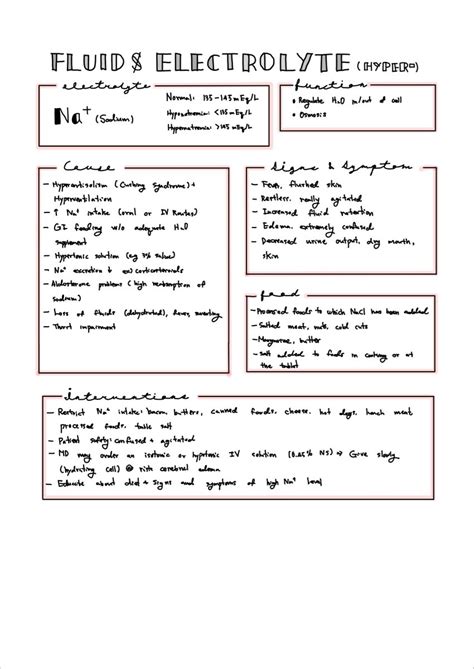 FLUID & ELECTROLYTE (HYPER-)
electrolyte
Na+ (Sodium)
Normal: 135-145 mEq/L
Hyponatremia: <135 mEq/L
Hypernatremia: >145 mEq/L
function
• Regulate H2O in/out of cell
• Osmosis
Cause
- Hypercortisolism (Cushing Syndrome) +
Hyperventilation
- ↑ Na+ intake (oral or IV Routes)
- GI feeding w/o adequate H2O
supplement
- Hypertonic solution (eg 3% value)
- Na+ excretion & corticosteroids
- Aldosterone problems (high reabsorption of
sodium)
- Loss of fluids (dehydrated), fever, sweating
- Thirst impairment
Signs & Symptom
- Fever, flushed skin
- Restless, really agitated
- Increased fluid retention
- Edema, extremely confused
- Decreased urine output, dry mouth,
skin
food
- Processed foods to which NaCl has been added
- Salted meat, nuts, cold cuts
- Margarine, butter
- Salt added to foods in cooking or at
the tablet
interventions
- Restrict Na+ intake: bacon, butters, canned foods, cheese, hot dogs, lunch meat
processed foods, table salt
- Patient safety: confused + agitated
- MD may order an isotonic or hypotonic IV solution (0.45% NS) → Give slowly
(hydrating cell) @ risk cerebral edema
- Educate about diet + signs and symptoms of high Na+ level